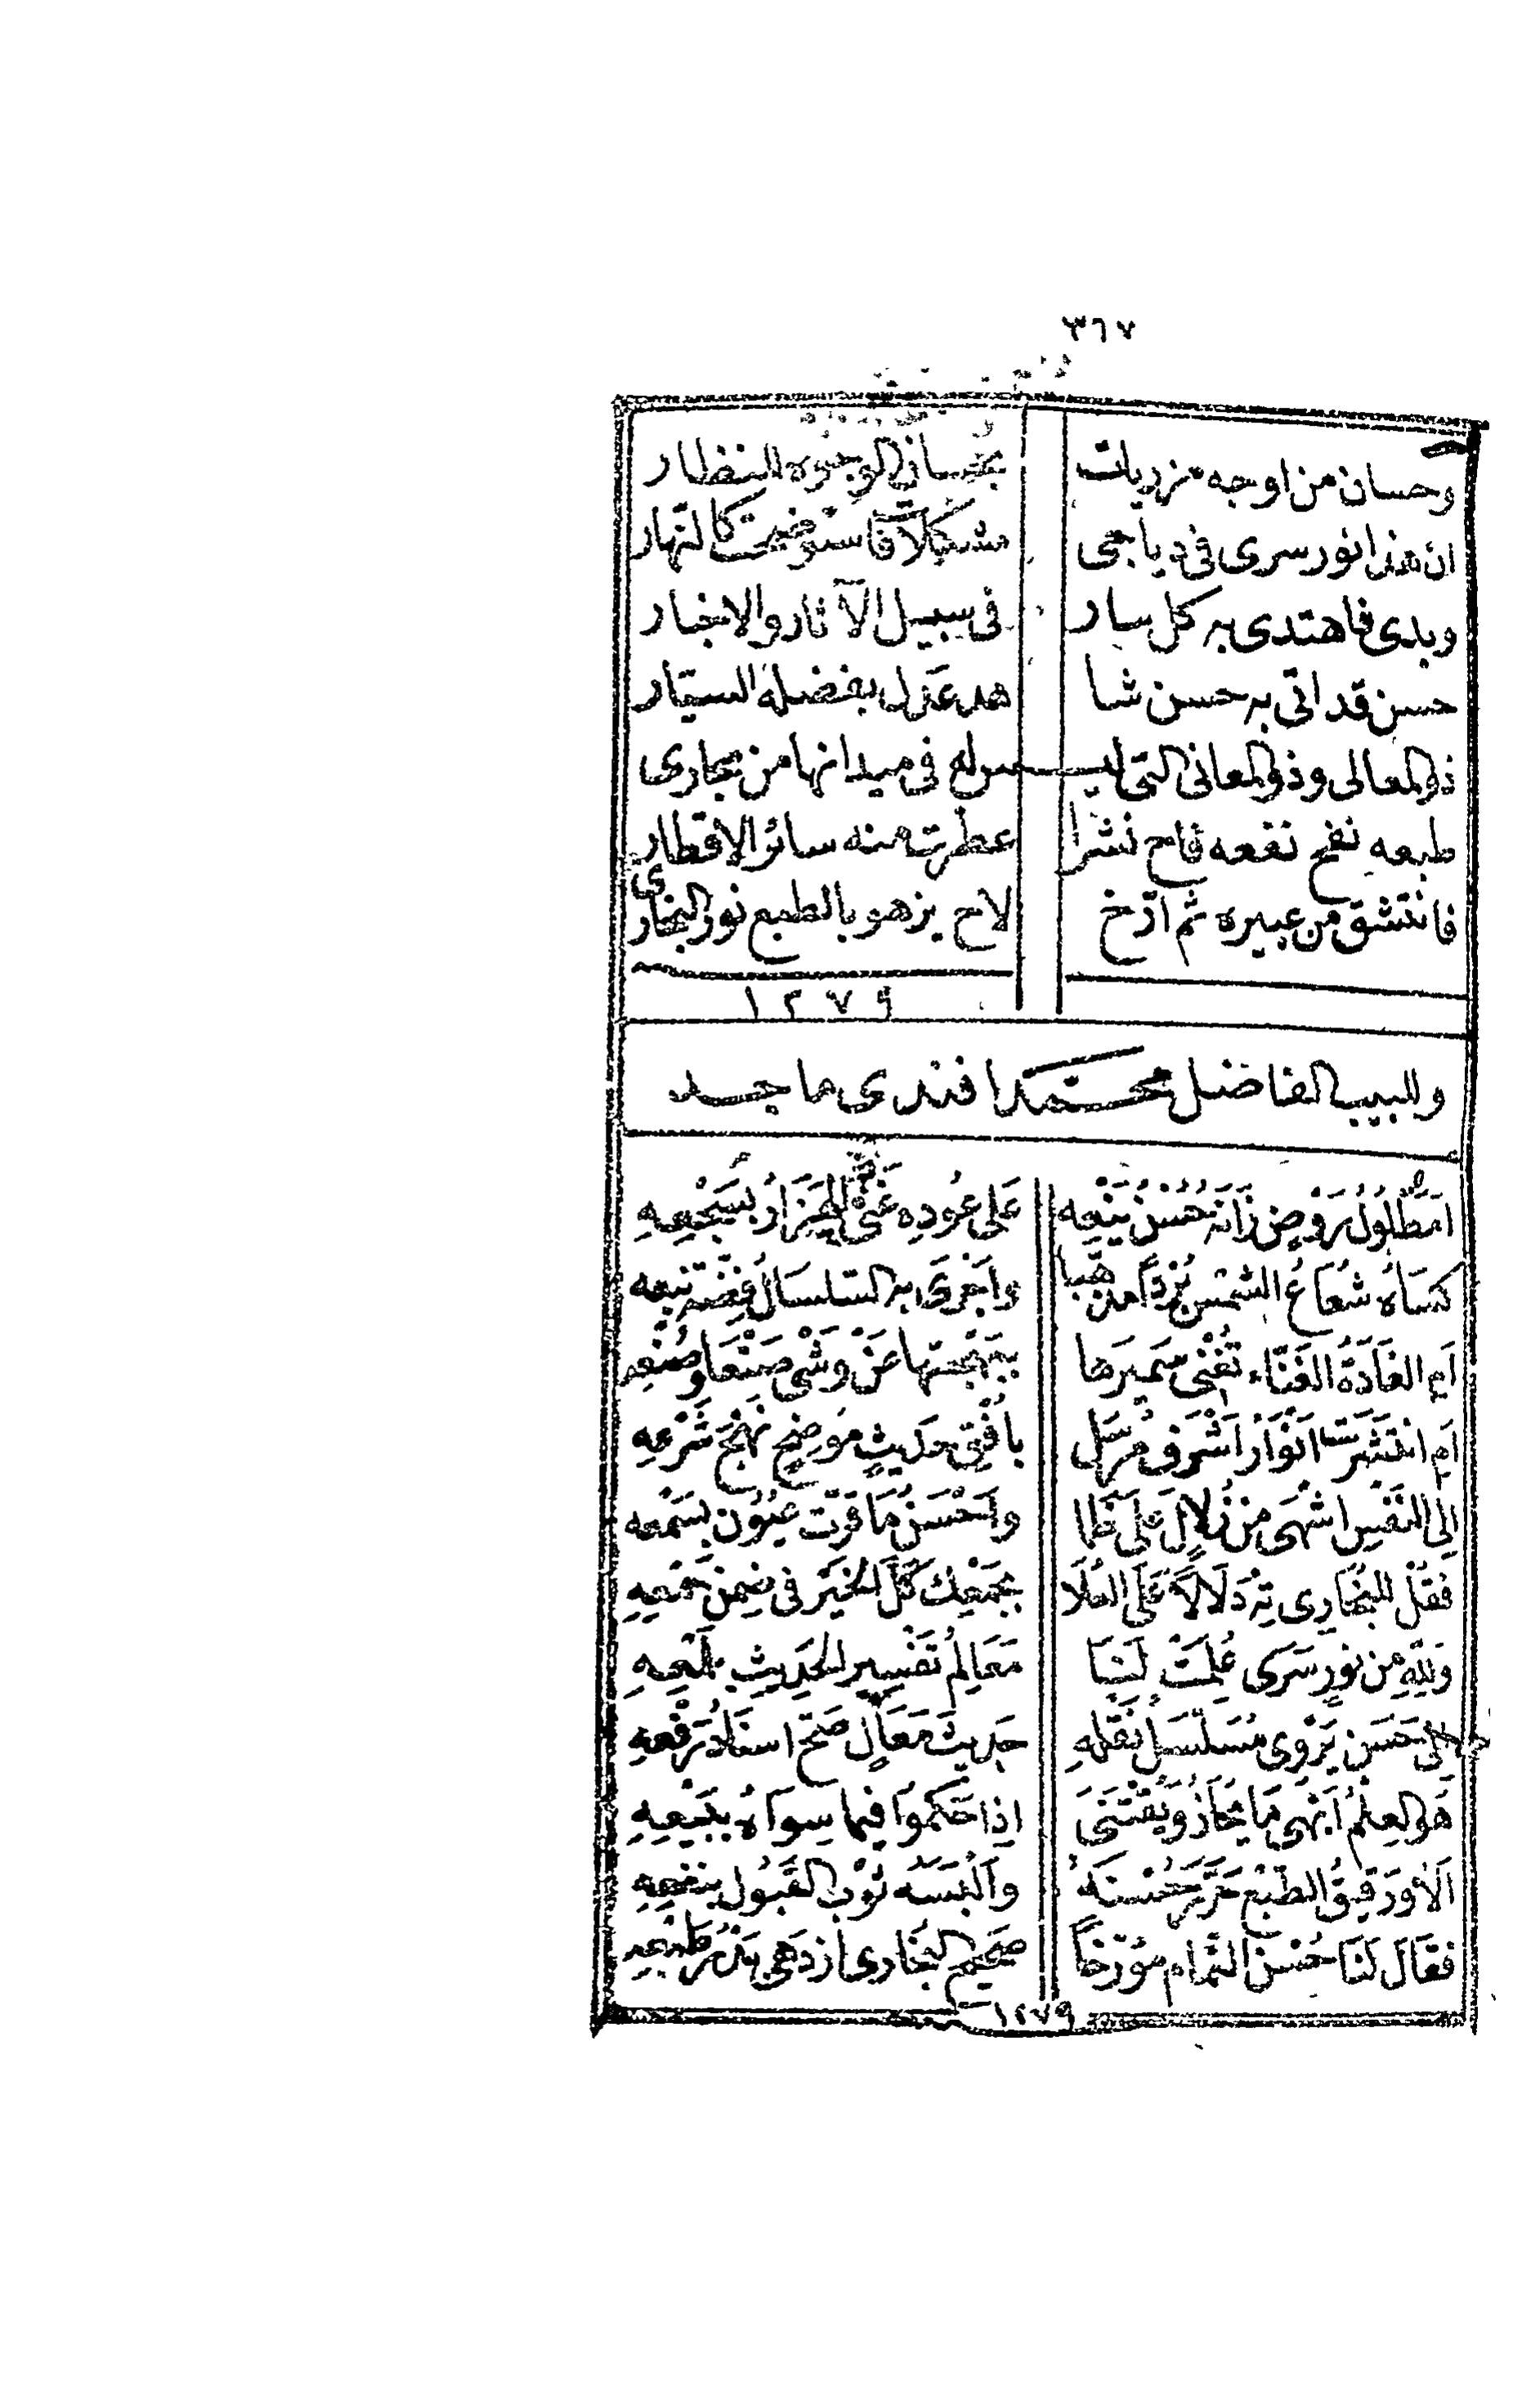 ٣٦٧
وحسان من اوجه مزريات بحسان الوجوه للنظار
ان هذا نور سرى فى دياجى مشكلات فاستوضحت كالنهار
وبدى فاهتدى به كل سار فى سبيل الآثار والاخبار
حسن قد اتى به حسن شا هد عدل بفضله السيّار
ذو المعالى وذو المعانى التى ليـ ـس له فى ميدانها من يجارى
طبعه نفح نفعه فاح نشرا عطرت منه سائر الاقطار
فانتشق من عبيره ثم ارّخ لاح يزهو بالطبع نور البخارى
١٢٧٩
وللبيب الفاضل محمّد افندى ماجد
اَمَطْلُولُ رَوْضٍ زَانَهُ حُسْنُ يَنْعِهِ عَلَى عُودِهِ غَنَّى الهَزَارُ بسَجْعِهِ
كسَاهُ شُعَاعُ الشمسِ بُرْدًا مذهّبا واَجْرَى به السّلسَالُ فِضّة نبعه
اَمِ الغَادَةُ الغَنَّاء تُغْنِى سَمِيرَهَا ببَهْجَتِهَا عَنْ وَشْىِ صَنْعَا وصُنْعِهِ
اَمِ انتَشَرَتْ اَنْوَارُ اَشْرَفِ مُرسَلٍ باُفْقِ حَدِيثٍ مُوضِحٍ نَهْجَ شَرْعِهِ
اِلَى النَفْسِ اشْهَى مِن زُلَالٍ عَلَى ظَمَا واَحْسَنُ مَا قَرّت عُيُون بسَمْعِهِ
فقُلْ للبُخَارِى تِهْ دَلَالاً عَلَى العُلَا بجَمْعِكَ كُلَّ الخَيْرِ فى ضِمْنِ جَمْعِهِ
وَلِلّهِ مِن نُورٍ سَرَى عُلِمَتْ لَنَا مَعَالِمُ تَفْسِيرِ الحَدِيثِ بلَمْعِهِ
اِلَى حَسَنٍ يَرْوِى مُسَلْسَلُ نَقْلِهِ حَدِيثَ مَعَالٍ صَحّ اسنَادُ رَفْعِهِ
هُوَ العِلْمُ اَبْهَى مَا يُحَازُ وَيُقْتَنَى اِذَا حَكَمُوا فيما سِوَاهُ ببَيْعِهِ
اَلَا وَرَقِيقُ الطّبْعِ حَرَّرَ حُسْنَهُ واَلْبَسَهُ ثَوْبَ القَبُولِ بنَفْعِهِ
فقَالَ لَنَا حُسْنُ التَّمَامِ مُؤرّخًا صَحِيحُ البُخَارِى ازدَهَى بَدْرُ طَبْعِهِ
١٢٧٩